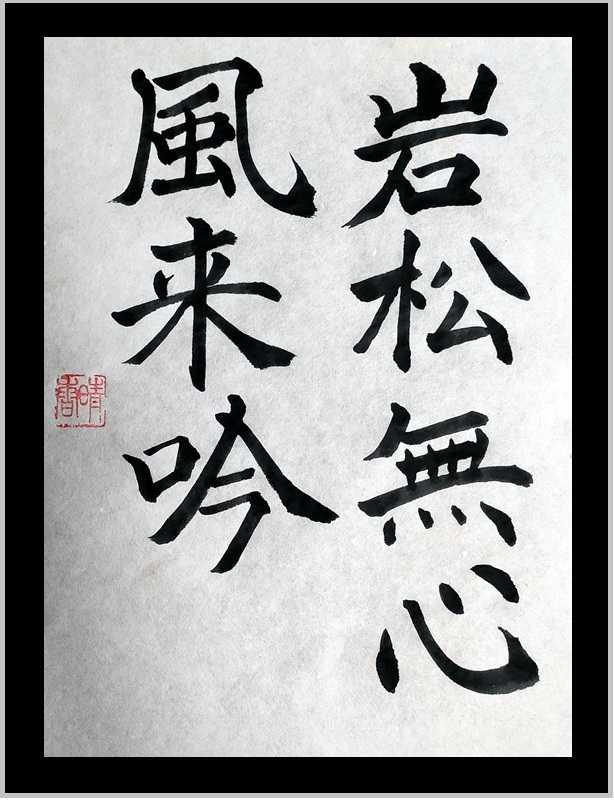 岩松無心
風来吟
晴香